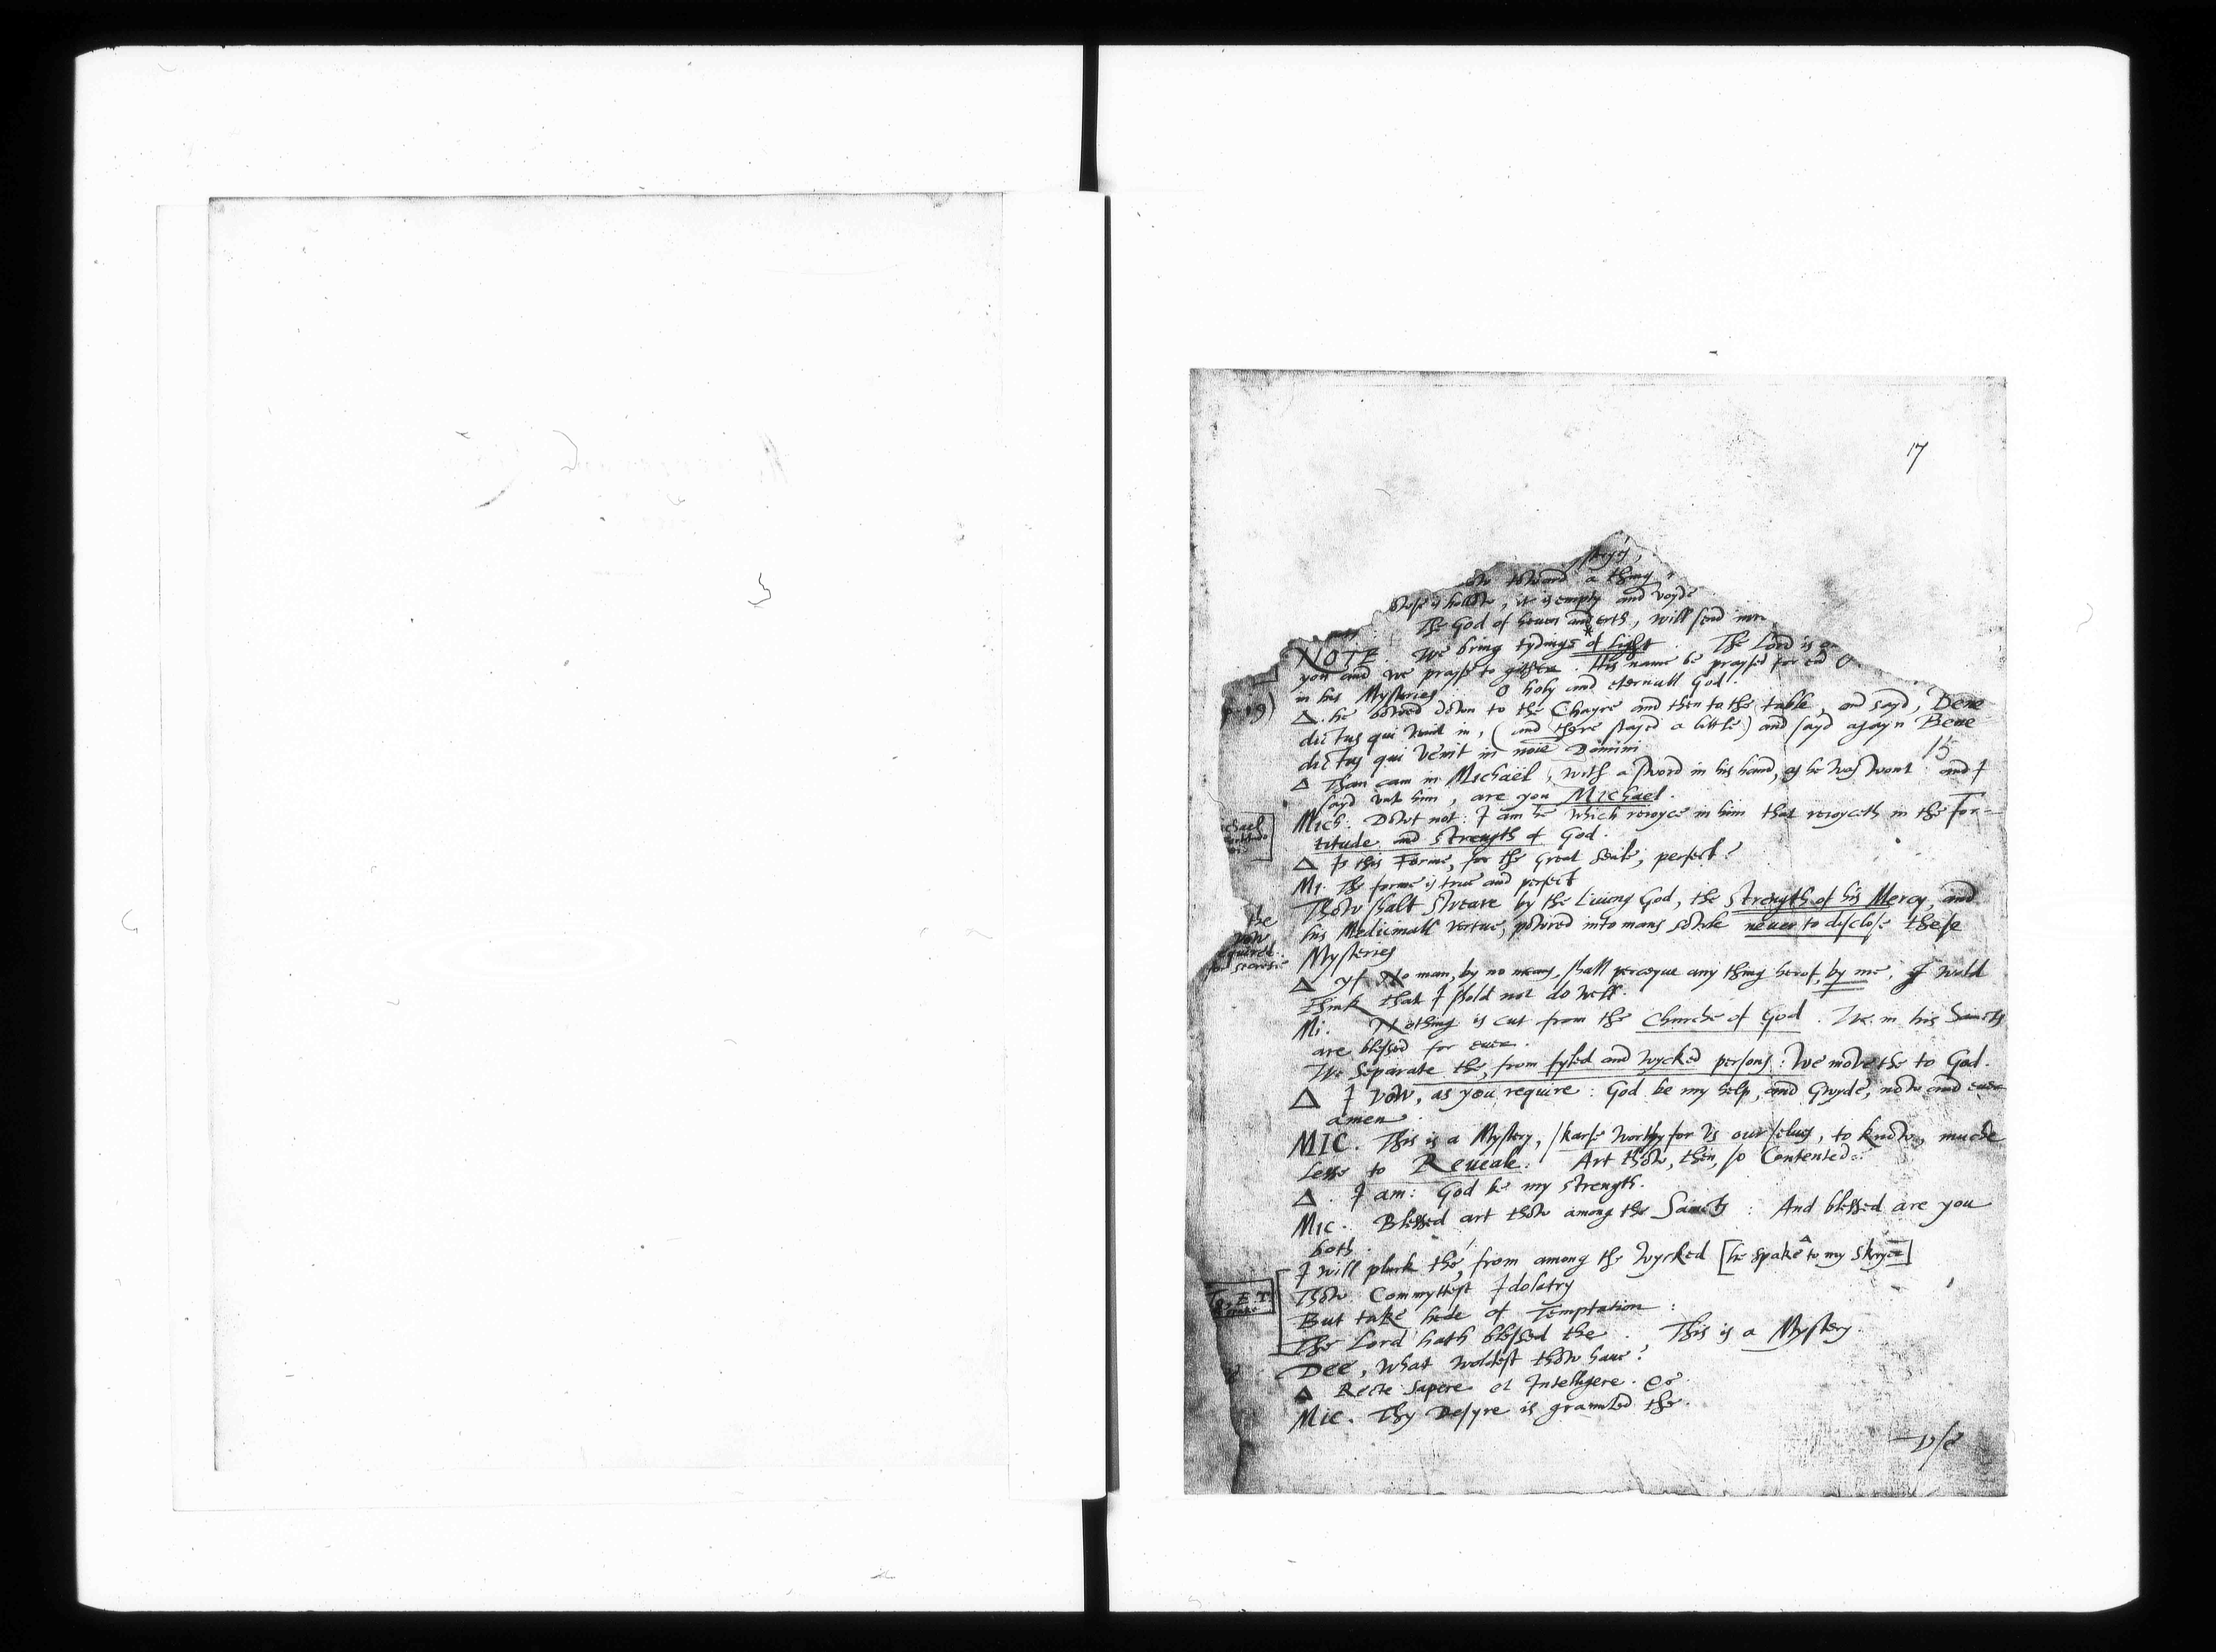 17
skryer,
ow toward a thing
wse is hollow, it is empty and voyde
The God of heven and erth, will send
NOTE We bring tydings of light. The Lord is
you and we prayse to gither. His name be praysed for ever O
in his Mysteries: O holy and eternall God.
Δ. he bowed down to the Chayre and then to the table, and sayd, Bene
dictus qui venit in, (and there stayed a little) and sayd agayn Bene
dictus qui venit in noīe Domini
15
Δ Than cam in Michaël, with a sword in his hand, as he was wont and I
sayd unto him, are you Michael.
Mich: Dowt not: I am he which reioyce in him that reioyceth in the For-
titude and Strength of God.
Δ Is this Forme, for the Great Seale, perfect?
Mi. The forme is true and perfect
Thow shalt sweare by the Living God, the Strength of his Mercy, and
his Medicinall vertue, powred into mans sowle never to disclose these
Mysteries
the
vow
for secresie
Δ yf No man, by no meanes, shall perceyue any thing herof, by me, I wold
think that I shold not do well.
Mi. Nothing is cut from the Churche of God. We in his Saincts
are blessed for ever.
We Separate the, from fyled and wycked persons: We move the to God.
Δ I vow, as you require: God be my help, and Gwyde, now and ever
amen.
MIC. This is a Mystery, skarse worthy for us our selues, to know, muche
lesse to Reueale. Art thow, then, so Contented?
Δ. I am: God be my strength.
Mic. Blessed art thow among the Saincts: And blessed are you
both.
I will pluck the, from among the wycked [he spake to my skryer]
Thow Commyttest Idolatry
But take hede of Temptation:
The Lord hath blessed the. This is a Mystery.
Dee, what woldest thow haue?
Δ Recte Sapere et Intelligere. &c
Mic. Thy Desyre is graunted the.
Use